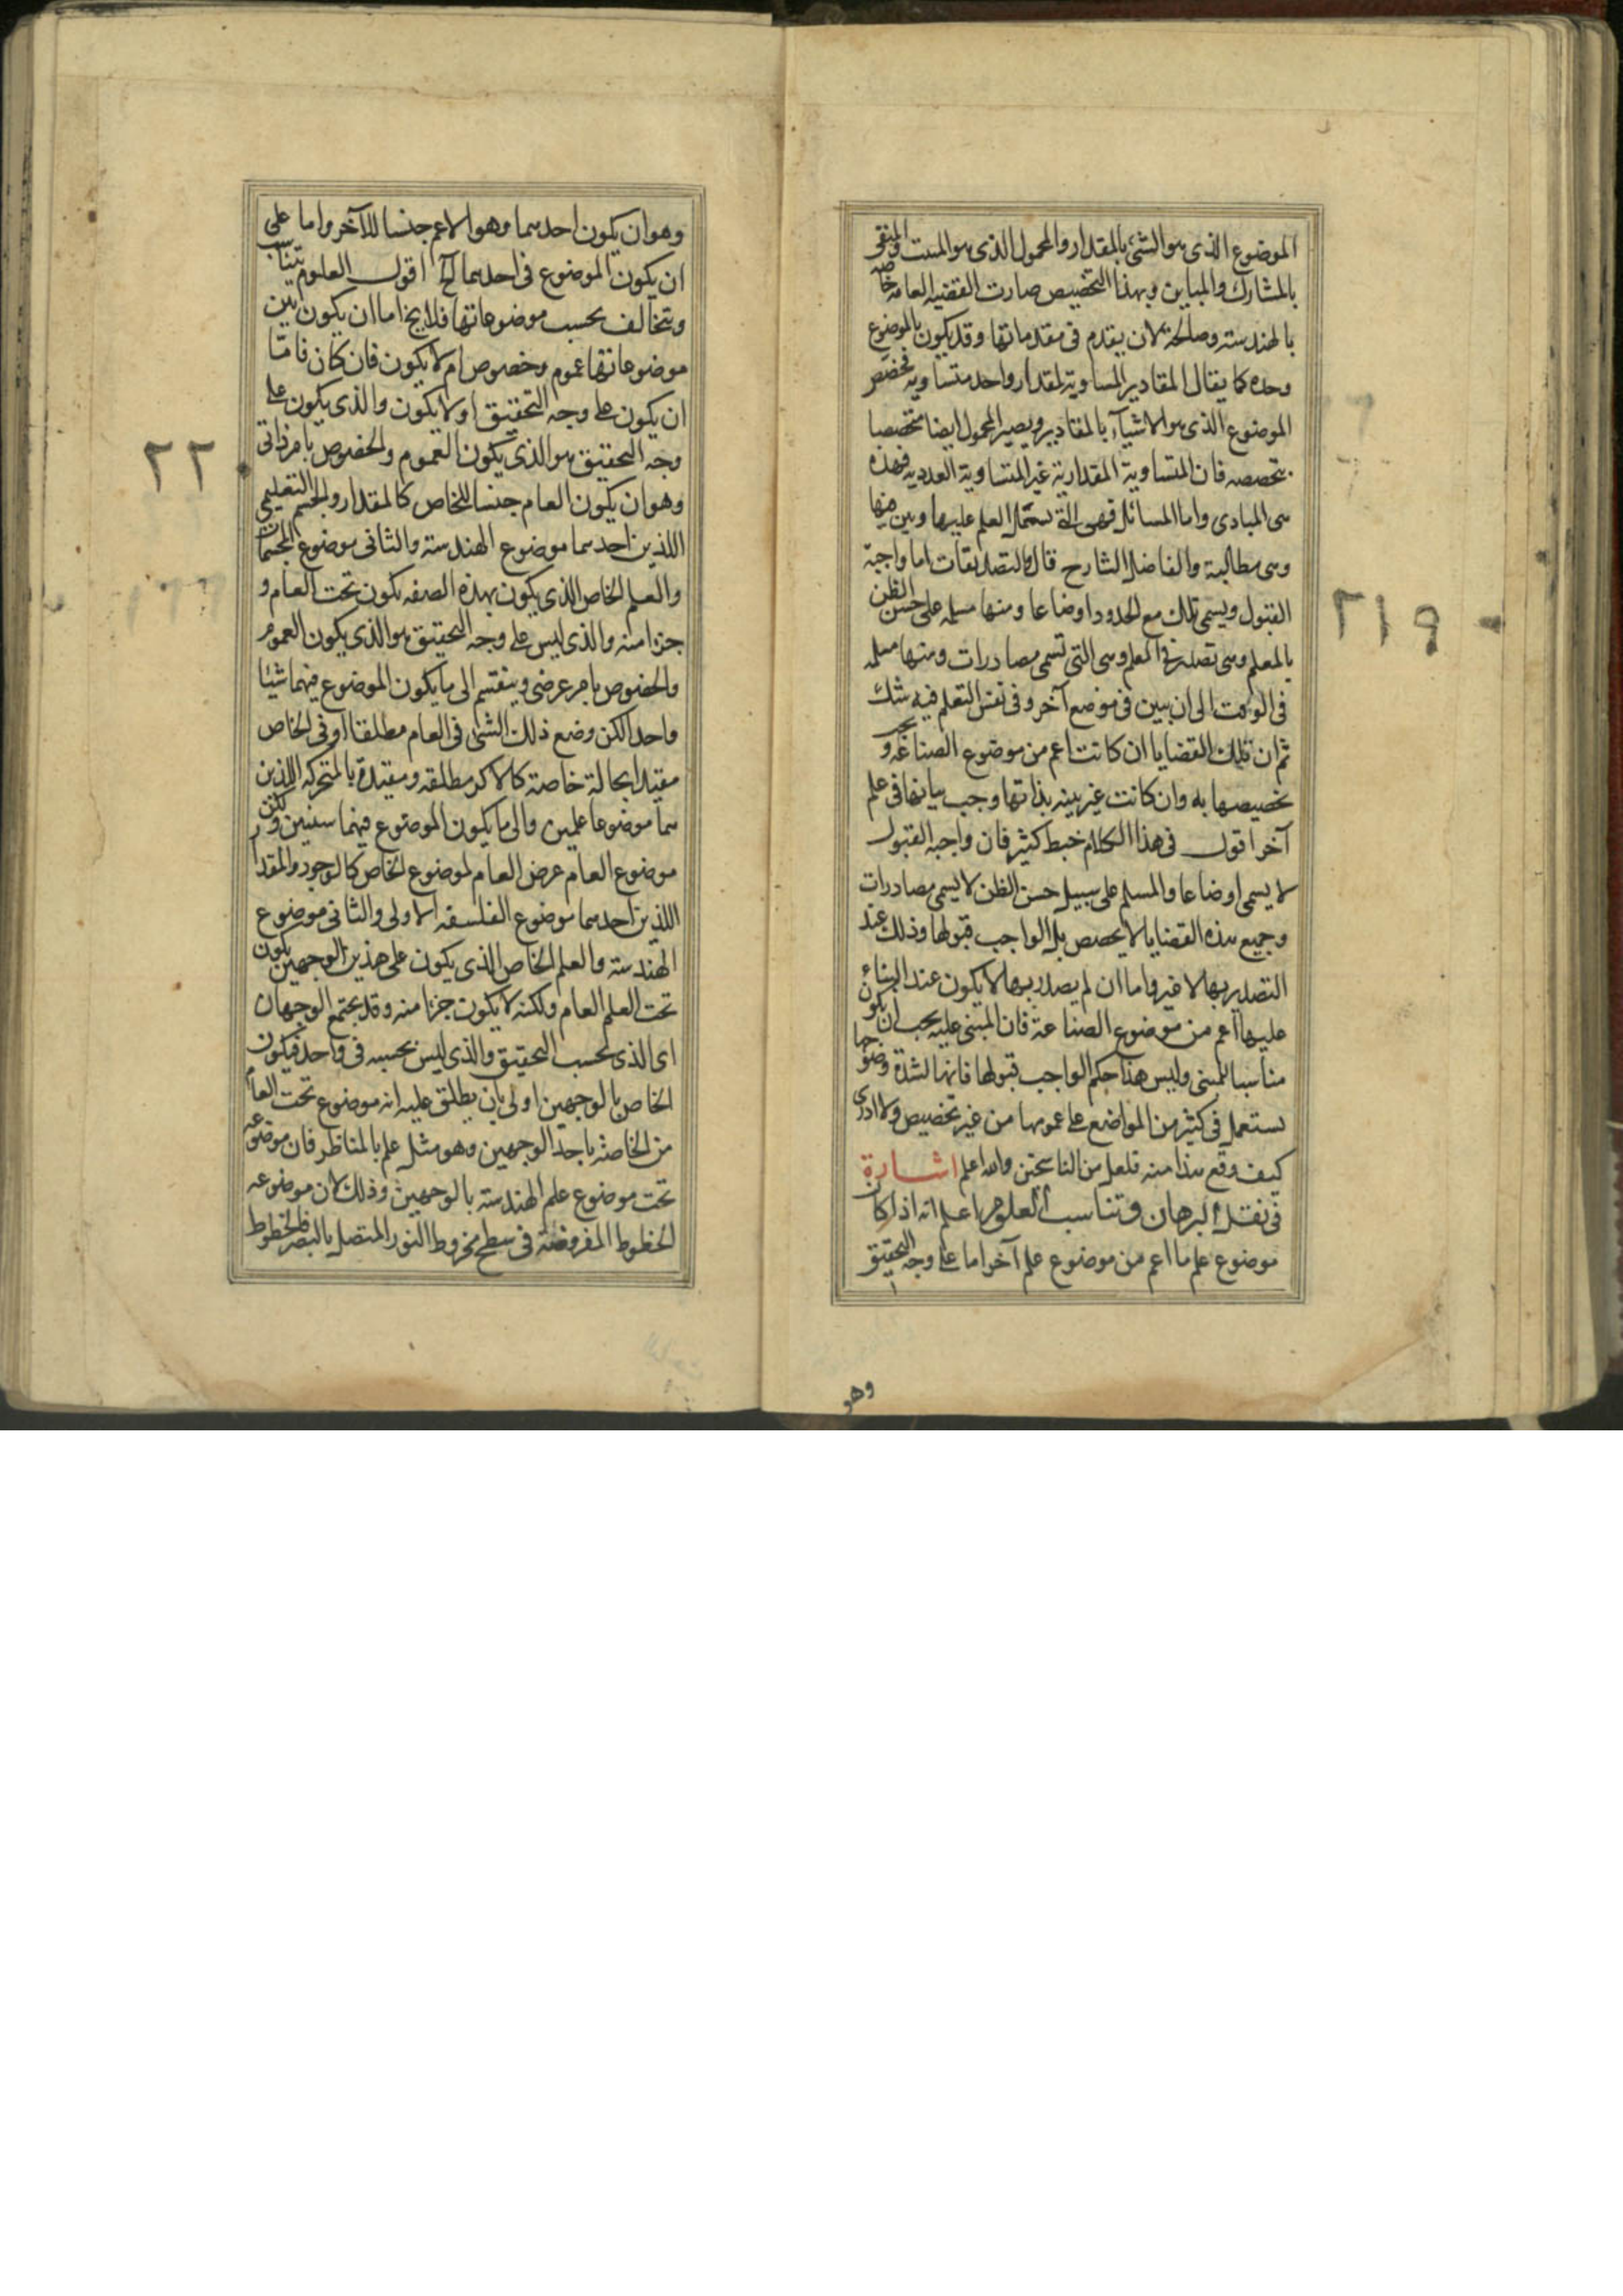 الموضوع الذى هو الشئ بالمقدار والمحمول الذى هو المثبت والمنفى
بالمشارك والمباين وبهذا التخصيص صارت القضية العامة خاصة
بالهندسة وصالحة لان يقدم فى مقدماتها وقد يكون بالموضوع
وحده كما يقال المقادير المساوية لمقدار واحد متساوية فخصص
الموضوع الذى هو الاشيآء بالمقادير ويصير المحمول ايضا متخصصا
بتخصصه فان المتساوية المقدارية غير المتساوية العددية فهذه
هى المبادى واما المسائل فهى التى يشتمل العلم عليها ويبين فيها
وهى مطالبه والفاضل الشارح قال والتصديقات اما واجبة
القبول ويسمى تلك مع الحدود اوضاعا ومنها مسلمه على حسن الظن
بالمعلم وهى تصدر فى العلم وهى التى تسمى مصادرات ومنها مسلمه
فى الوقت الى ان يبين فى موضع آخر وفى نفس المتعلم فيه شك
ثم ان تلك القضايا ان كانت اعم من موضوع الصناعة وجب
تخصيصها به وان كانت غير بينه بذاتها وجب بيانها فى علم
آخر اقول فى هذا الكلام خبط كثير فان واجبه القبول
لا يسمى اوضاعا والمسلم على سبيل حسن الظن لا يسمى مصادرات
وجميع هذه القضايا لا يخصص بل الواجب قبولها وذلك عند
التصدير بها لا غير واما ان لم يصدر بها لا يكون عند البناء
عليها اعم من موضوع الصناعة فان المبنى عليه يجب ان يكون
مناسبا للمبنى وليس هذا حكم الواجب قبولها فانها لشدة وضوحها
يستعمل فى كثير من المواضع على عمومها من غير تخصيص ولا ادرى
كيف وقع هذا منه فلعل من الناسخين والله اعلم اشارة
فى نقل البرهان وتناسب العلوم اعلم انه اذا كان
موضوع علم ما اعم من موضوع علم آخر اما على وجه التحقيق
وهو
٢١٩
وهو ان يكون احدهما وهو الاعم جنسا للآخر واما على
ان يكون الموضوع فى احدهما الخ اقول العلوم تتناسب
وتتخالف بحسب موضوعاتها فلا يخ اما ان يكون بين
موضوعاتها عموم وخصوص ام لا يكون فان كان فامّا
ان يكون على وجه التحقيق او لا يكون والذى يكون على
وجه التحقيق هو الذى يكون العموم والخصوص بامر ذاتى
وهو ان يكون العام جنسا للخاص كالمقدار والجسم التعليمى
اللذين احدهما موضوع الهندسة والثانى موضوع المجسمات
والعلم الخاص الذى يكون بهذه الصفه يكون تحت العام و
جزءا منه والذى ليس على وجه التحقيق هو الذى يكون العموم
والخصوص بامر عرضى وينقسم الى ما يكون الموضوع فيهما شيئا
واحدا لكن وضع ذلك الشئ فى العام مطلقا او فى الخاص
مقيدا بحالة خاصة كالاكر مطلقه ومقيدة بالمتحركه اللذين
هما موضوعا علمين والى ما يكون الموضوع فيهما شيئين ولكن
موضوع العام عرض العام لموضوع الخاص كالوجود والمقدار
اللذين احدهما موضوع الفلسفه الاولى والثانى موضوع
الهندسة والعلم الخاص الذى يكون على هذين الوجهين يكون
تحت العلم العام ولكنه لا يكون جزءا منه وقد يجتمع الوجهان
اى الذى بحسب التحقيق والذى ليس بحسبه فى واحد فيكون
الخاص بالوجهين اولى بان يطلق عليه انه موضوع تحت العام
من الخاصة باحد الوجهين وهو مثل علم المناظر فان موضوعه
تحت موضوع علم الهندسة بالوجهين وذلك لان موضوعه
الخطوط المفروضة فى سطح مخروط النور المتصل بالبصر فالخطوط
٢٢٠